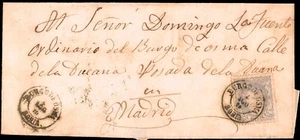 Al Señor Domingo La Fuente
Ordinario del Burgo de osma Calle
de la Ducana Posada de la Ducana
en
Madrid